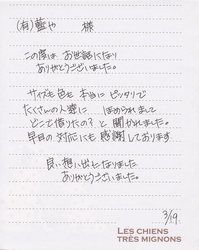 (有)藍や 様
この度は お世話になり
ありがとうございました。
サイズも色も 本当に ピッタリで
たくさんの人達に ほめられまして
どこで借りたの? と 聞かれました。
早目の 対応にも 感謝しております
良い想い出になりました
ありがとうございました。
3/19.
LES CHIENS
TRÈS MIGNONS